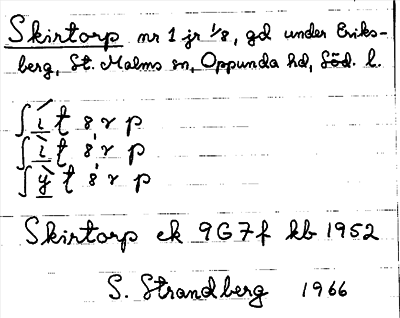 Skirtorp nr 1 jr 1/8, gd under Eriks-
berg, St. Malms sn, Oppunda hd, Söd. l.
ʃ í t s, r p
ʃ ì t s, r p
ʃ ỳ t s, r p
Skirtorp ek 9G7f kb 1952
S. Strandberg 1966